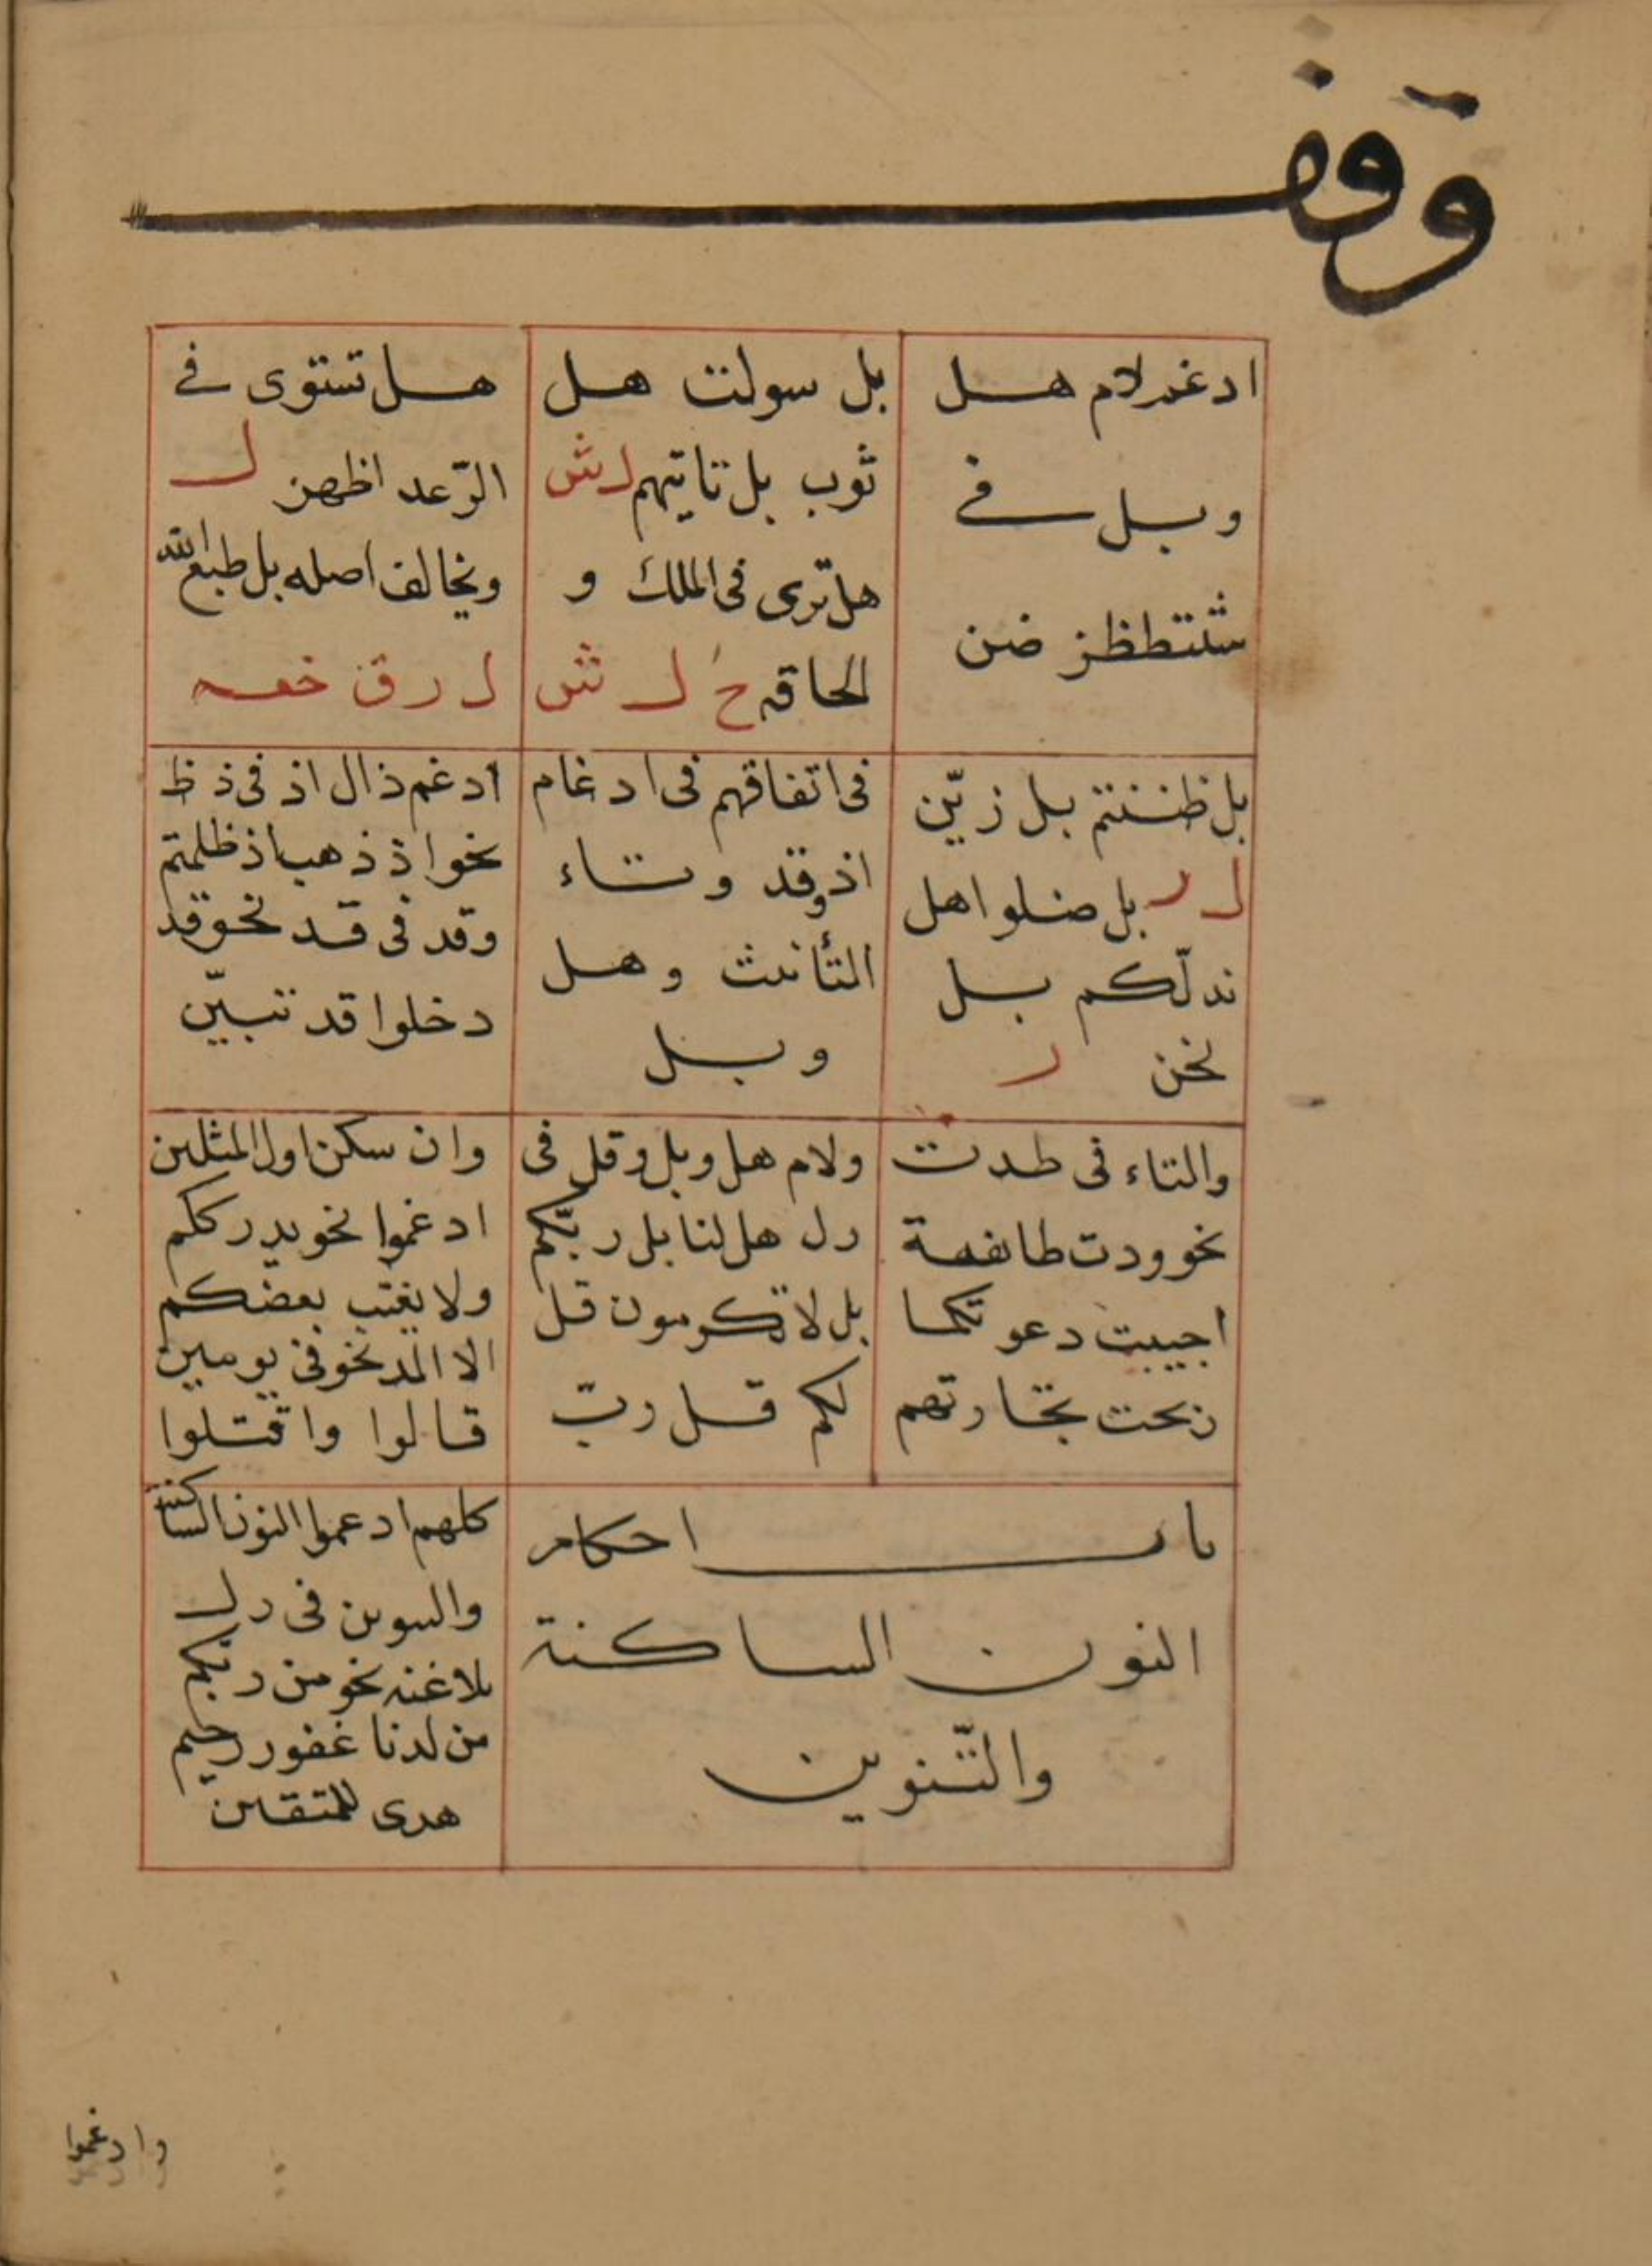 وقف
ادغم لام هل
وبل في
ستثتطظز ضن
بل سولت هل
ثوب بل تاتيهم ل ش
هل ترى فى الملك و
الحاقه ح ل ش
هل تستوى في
الرّعد اظهن ل
ويخالف اصله بل طبع الله
ل ر ق خعه
بل ظننتم بل زيّن
ل ر بل ضلوا هل
ندلّكم بل
نحن ر
فى اتفاقهم فى ادغام
اذ وقد وتاء
التأنيث وهل
وبل
ادغم ذال اذ فى ذ ظ
نحو اذ ذهب اذ ظلمتم
وقد فى قد نحو قد
دخلوا قد تبيّن
والتاء فى طدت
نحو ودت طائفة
اجيبت دعوتكما
ربحت تجارتهم
ولام هل وبل وقل فى
رل هل لنا بل ربّكم
بل لا تكرمون قل
لكم قل ربّ
وان سكن اول المثلين
ادغموا نحو يدرككم
ولا يغتب بعضكم
الا المد نحو فى يومين
قالوا واقتلوا
باب احكام
النون الساكنة
والتّنوين
كلهم ادغموا النون الساكنة
والتنوين فى رل
بلا غنه نحو من ربكم
من لدنا غفور رحيم
هدى للمتقين
وادغموا